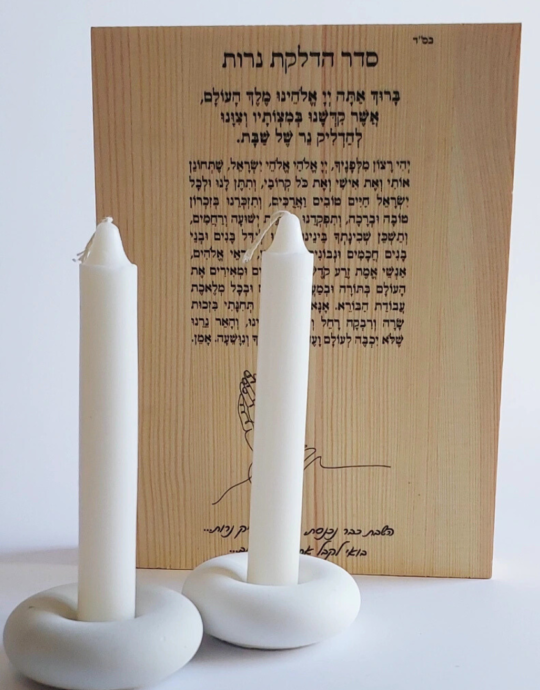 בס"ד
סדר הדלקת נרות
בָּרוּךְ אַתָּה יְיָ אֱלֹהֵינוּ מֶלֶךְ הָעוֹלָם,
אֲשֶׁר קִדְּשָׁנוּ בְּמִצְוֹתָיו וְצִוָּנוּ
לְהַדְלִיק נֵר שֶׁל שַׁבָּת.
יְהִי רָצוֹן מִלְּפָנֶיךָ, יְיָ אֱלֹהַי אֱלֹהֵי יִשְׂרָאֵל, שֶׁתְּחוֹנֵן
אוֹתִי וְאֶת אִישִׁי וְאֶת כֹּל קְרוֹבַי, וְתִתֵּן לָנוּ וּלְכָל
יִשְׂרָאֵל חַיִּים טוֹבִים וַאֲרֻכִּים, וְתִזְכְּרֵנוּ בְּזִכְרוֹן
טוֹבָה וּבְרָכָה, וְתִפְקְדֵנוּ יְשׁוּעָה וְרַחֲמִים,
וְתַשְׁכֵּן שְׁכִינָתְךָ בֵּינֵינוּ בָּנִים וּבְנֵי
בָנִים חֲכָמִים אֱלֹהִים,
אַנְשֵׁי אֱמֶת זֶרַע קֹדֶשׁ וּמְאִירִים אֶת
הָעוֹלָם בְּתוֹרָה וּבְכָל מְלֶאכֶת
עֲבוֹדַת הַבּוֹרֵא. אָנָּא תְּחִנָּתִי בִּזְכוּת
שָׂרָה וְרִבְקָה רָחֵל וְהָאֵר נֵרֵנוּ
שֶׁלֹּא יִכְבֶּה לְעוֹלָם וְנִוָּשֵׁעָה. אָמֵן.
השבת כבר נכנסת נרות...
בואי לקבל